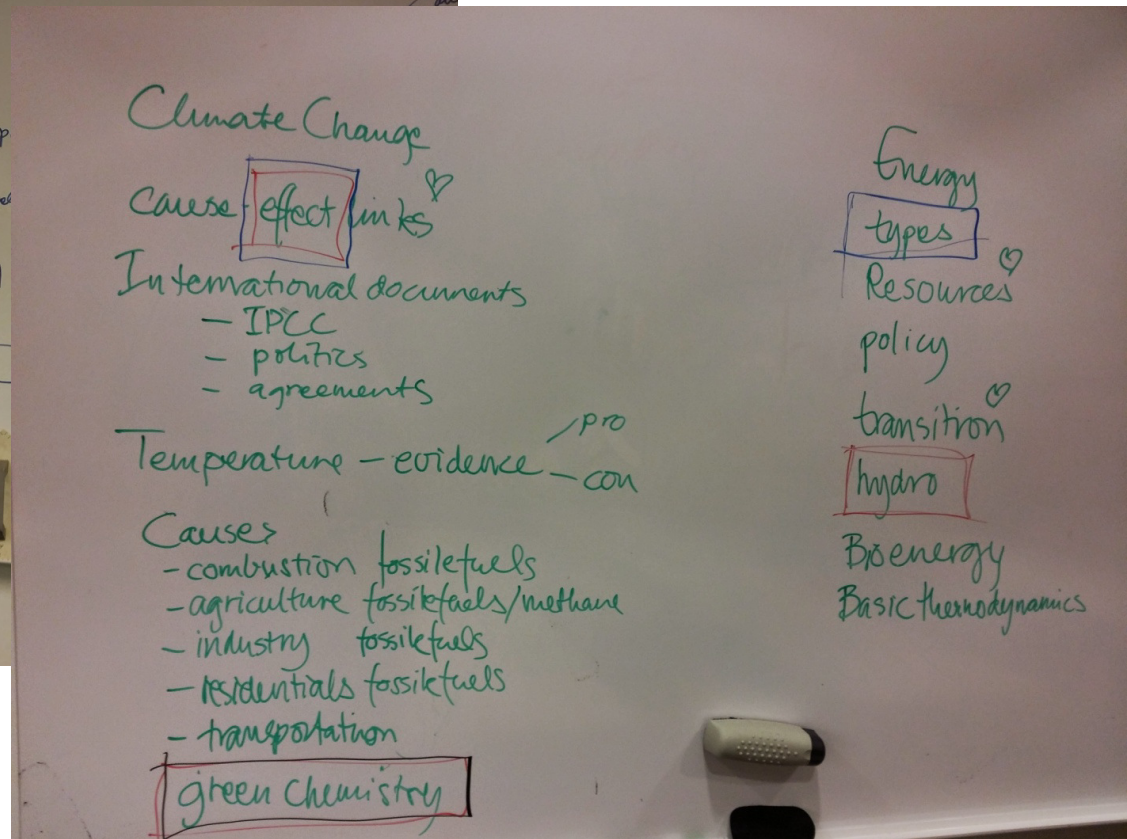 Climate Change
cause effect links
International documents
- IPCC
- politics
- agreements
Temperature - evidence - pro
- con
Causes
- combustion fossilefuels
- agriculture fossilefuels/methane
- industry fossilefuels
- residentials fossilefuels
- transportation
green chemistry
Energy
types
Resources
policy
transition
hydro
Bioenergy
Basic thermodynamics